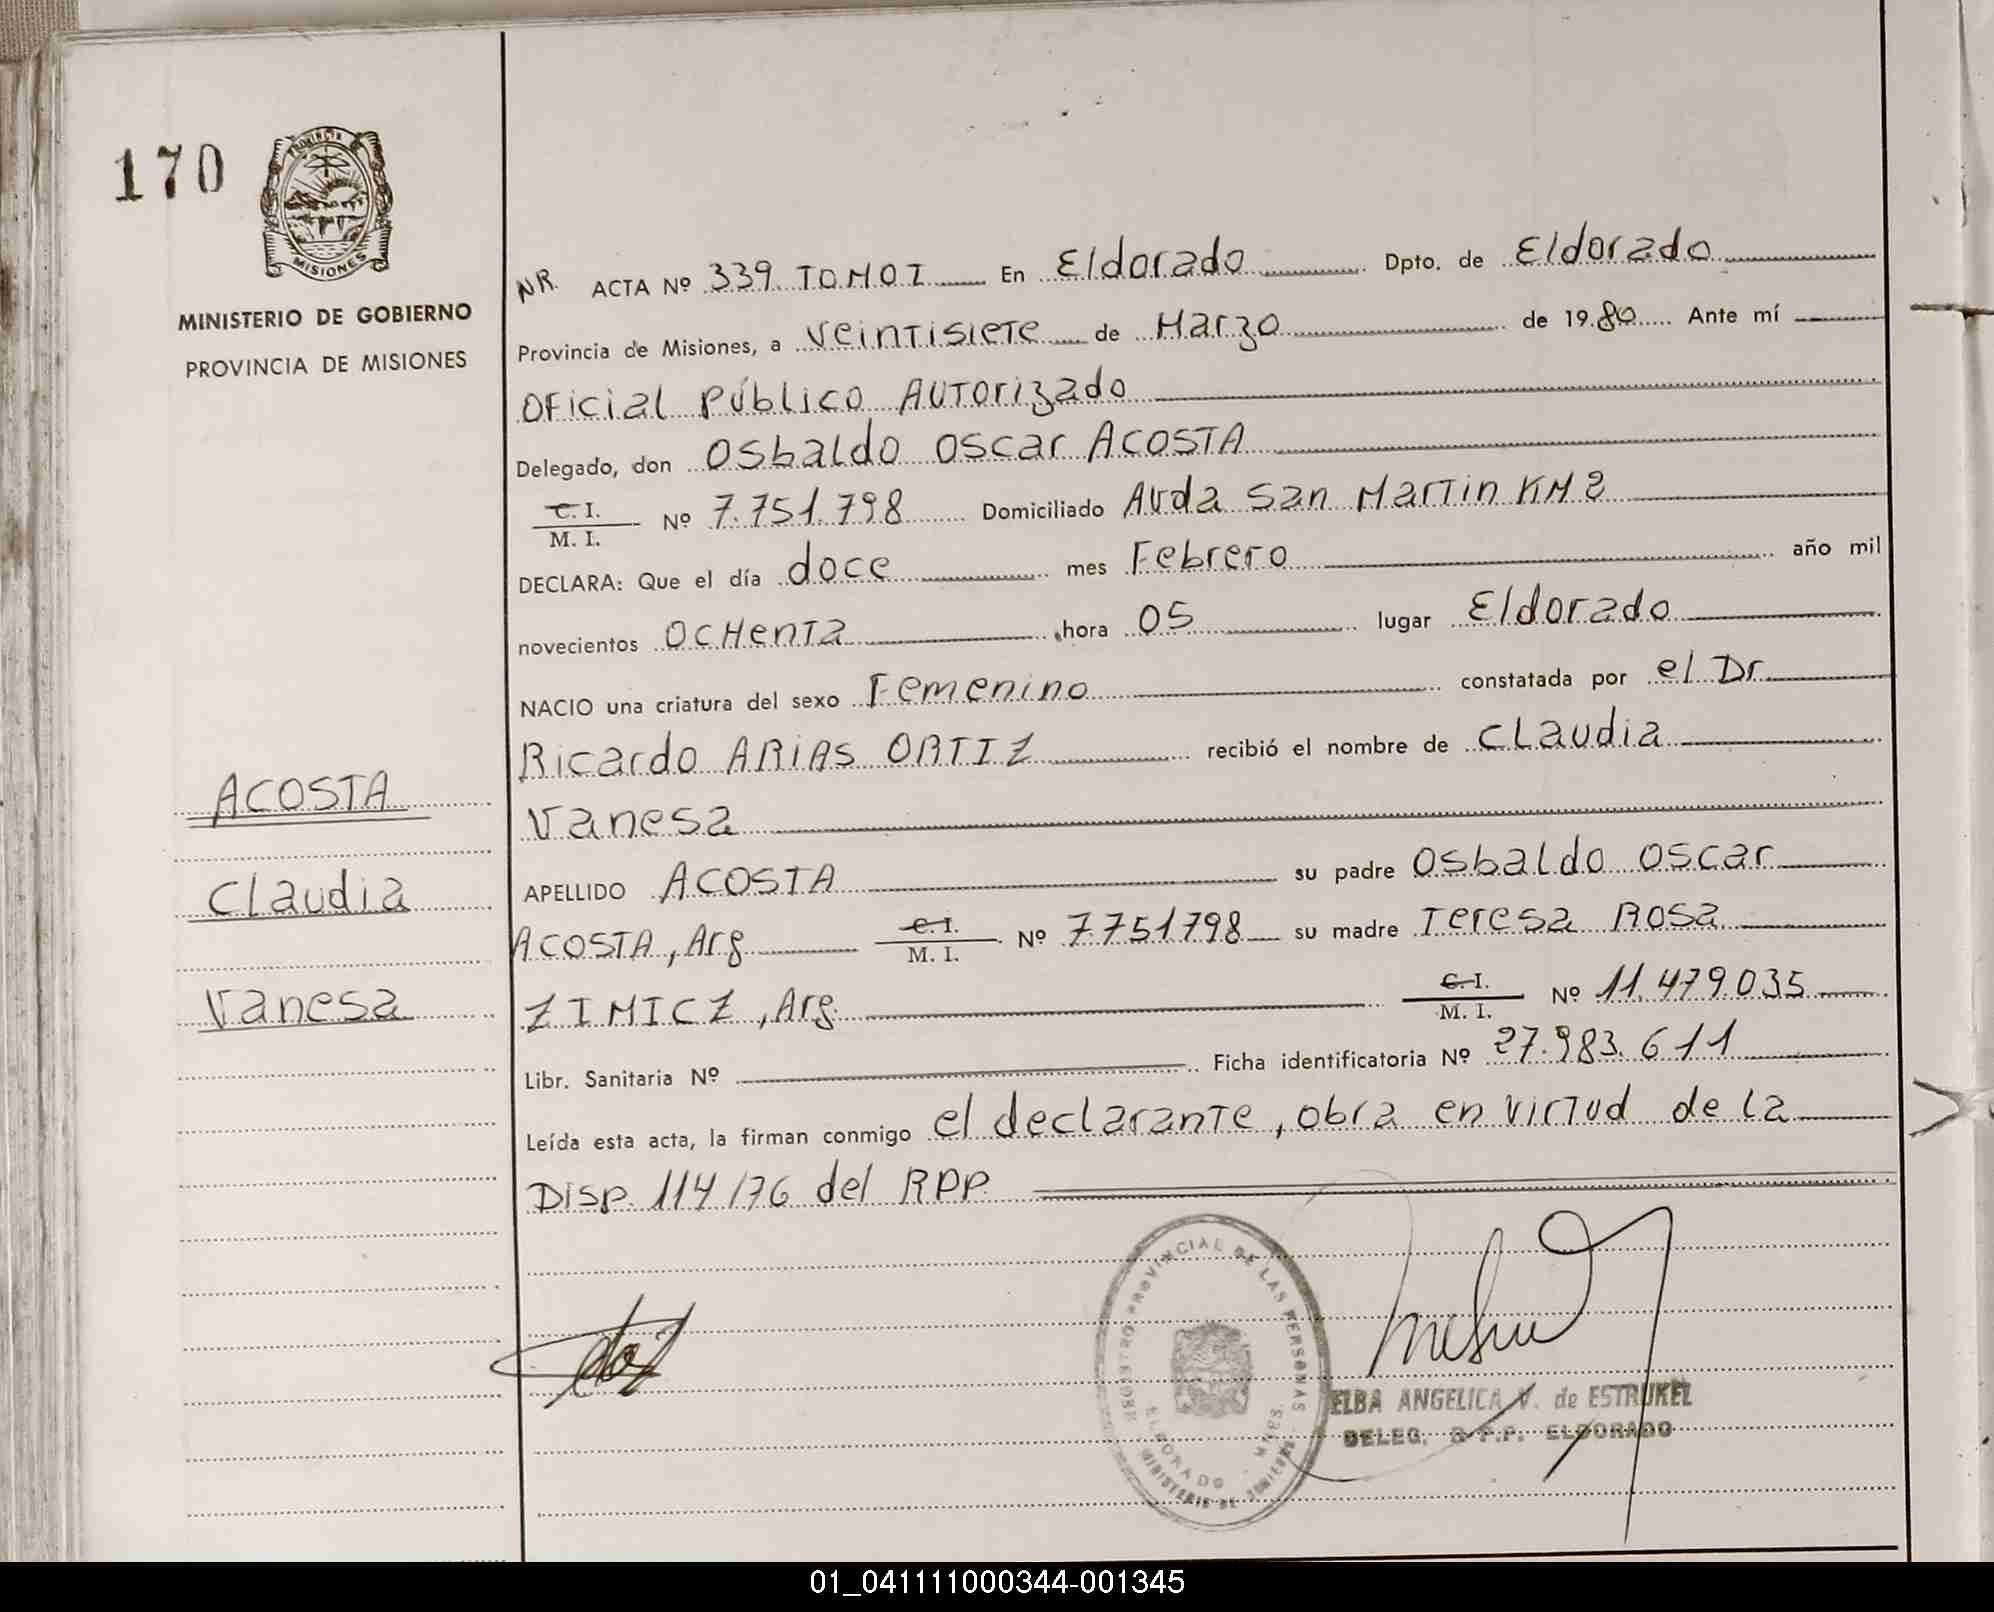 170
PROVINCIA
MISIONES
MINISTERIO DE GOBIERNO
PROVINCIA DE MISIONES
ACOSTA
Claudia
Vanesa
NR. ACTA Nº 339 TOMO I En Eldorado Dpto. de Eldorado
Provincia de Misiones, a Veintisiete de Marzo de 1980 Ante mí
Oficial Público Autorizado
Delegado, don Osbaldo Oscar ACOSTA
C. I. / M. I. Nº 7.751.798 Domiciliado Avda San Martin KM 2
DECLARA: Que el día doce mes Febrero año mil
novecientos Ochenta hora 05 lugar Eldorado
NACIO una criatura del sexo Femenino constatada por el Dr
Ricardo ARIAS ORTIZ recibió el nombre de Claudia
Vanesa
APELLIDO ACOSTA su padre Osbaldo Oscar
ACOSTA, Arg C. I. / M. I. Nº 7751798 su madre Teresa Rosa
ZIMICZ, Arg. C. I. / M. I. Nº 11.479.035
Libr. Sanitaria Nº Ficha identificatoria Nº 27.983.611
Leída esta acta, la firman conmigo el declarante, obra en virtud de la
Disp. 114/76 del RPP
REGISTRO PROVINCIAL DE LAS PERSONAS
ELDORADO - MNES.
MINISTERIO DE GOBIERNO
ELBA ANGELICA V. de ESTRUKEL
DELEG. R.P.P. ELDORADO
01_041111000344-001345